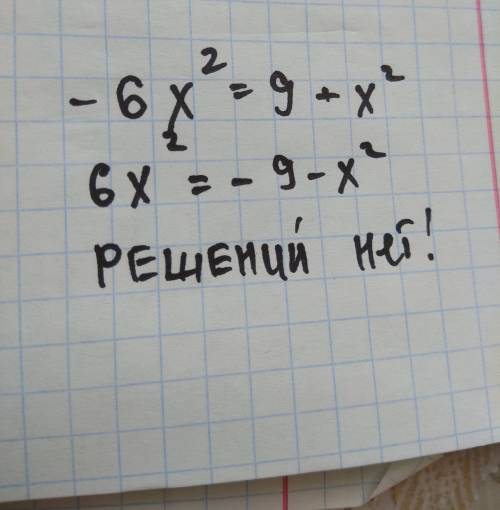 - 6 x² = 9 + x²
6x² = - 9 - x²
РЕШЕНИЙ НЕТ!